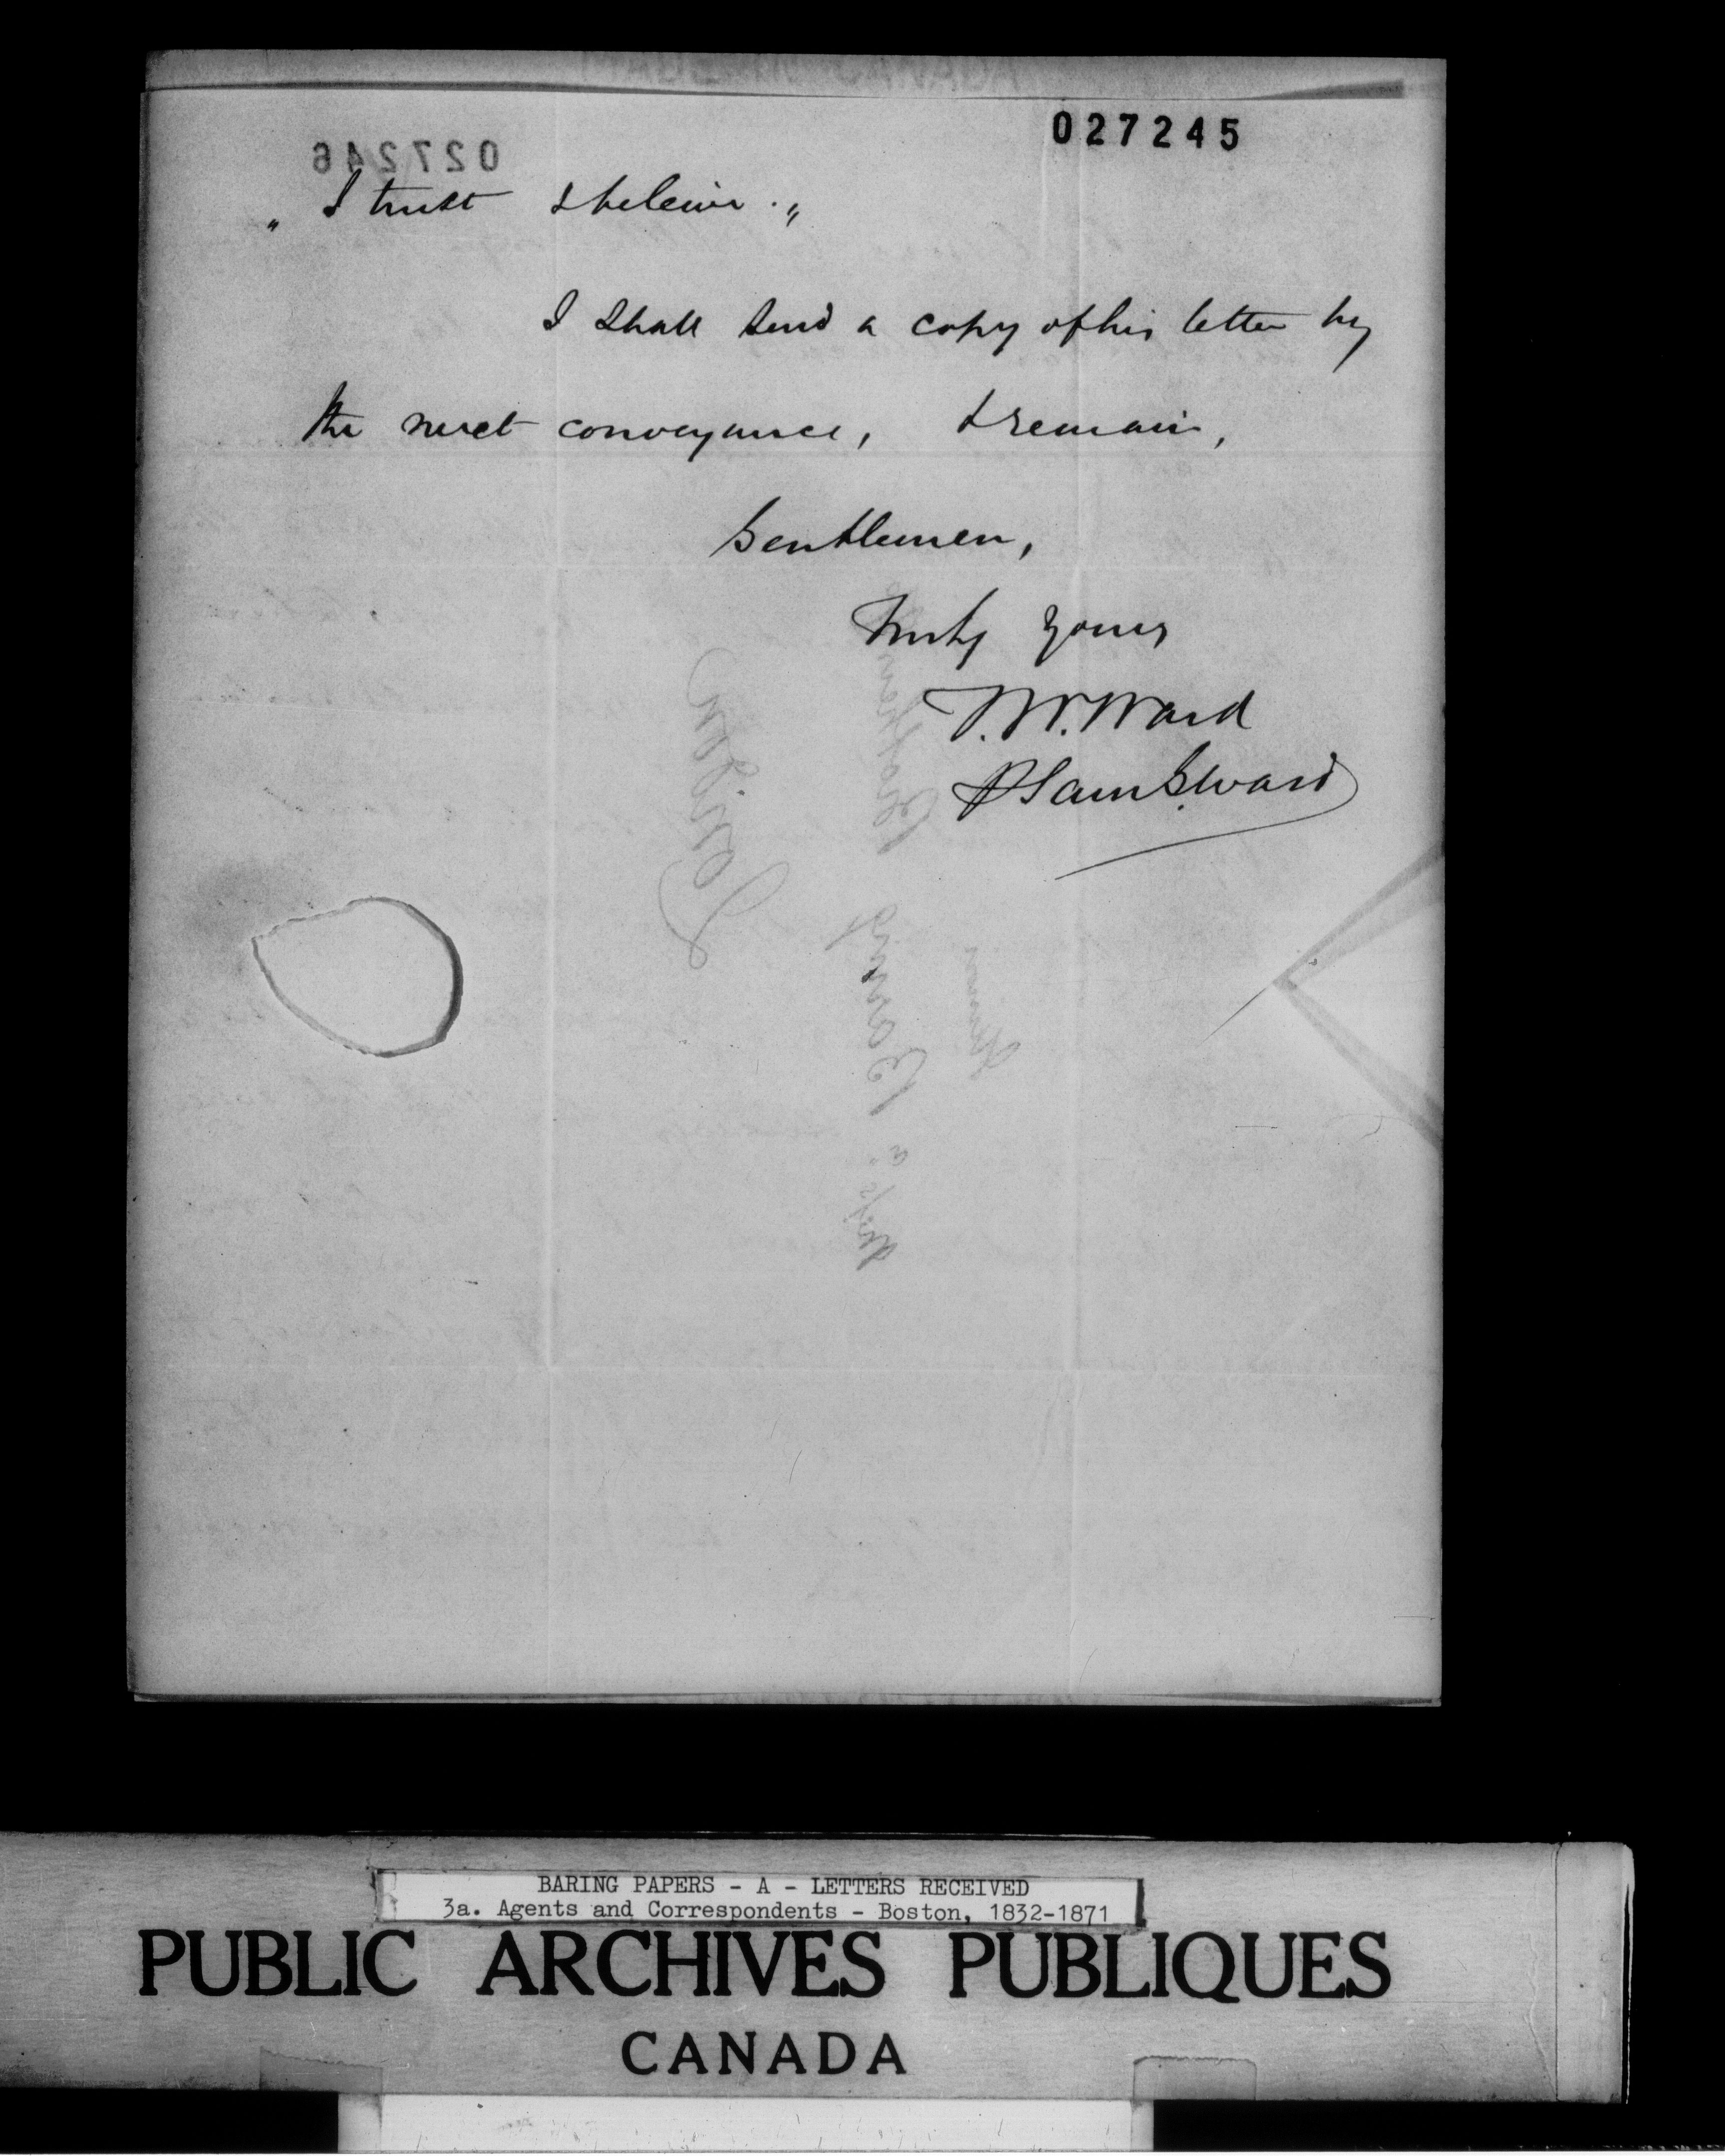 027245
027246
" I trust & believe. "
I shall send a copy of this letter by
the next conveyance, & remain,
Gentlemen,
Truly yours
T. W. Ward
P Sam G. Ward
London
Baring Brothers
BARING PAPERS - A - LETTERS RECEIVED
3a. Agents and Correspondents - Boston, 1832-1871
PUBLIC ARCHIVES PUBLIQUES
CANADA